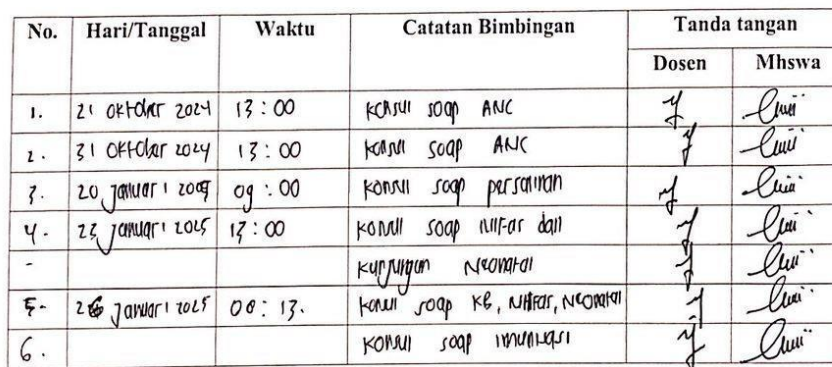 No. Hari/Tanggal Waktu Catatan Bimbingan Tanda tangan
Dosen Mhswa
1. 21 oktober 2024 13:00 Konsul soap ANC
2. 31 oktober 2024 13:00 Konsul soap ANC
3. 20 januari 2009 09:00 Konsul soap persalinan
4. 23 januari 2025 13:00 Konsul soap nifas dan
- Kunjungan Neonatal
5. 26 januari 2025 00:13. Konsul soap KB, Nifas, Neonatal
6. Konsul soap imunisasi